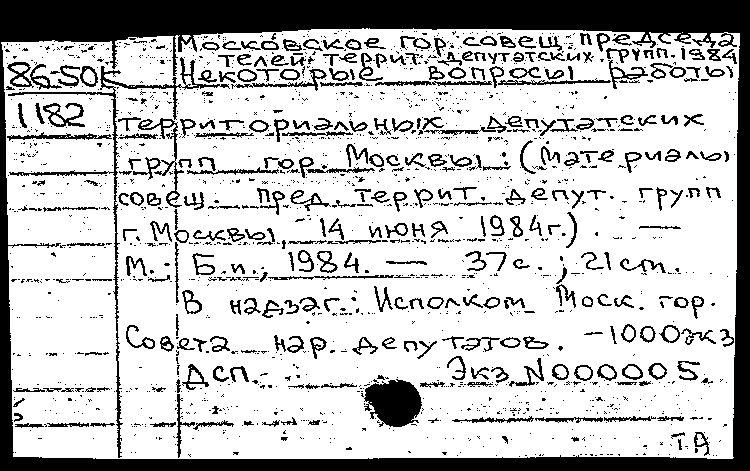 Московское гор. совещ. председа
телей террит. депутатских групп. 1984
86-50к Некоторые вопросы работы
1182
территориальных депутатских
групп гор. Москвы : (Материалы
совещ. пред. террит. депут. групп
г. Москвы, 14 июня 1984г.) . —
М. : Б.и., 1984. — 37с. ; 21 cm.
В надзаг.: Исполком Моск. гор.
Совета нар. депутатов. -1000экз
ДСП. Экз N000005.
ТА